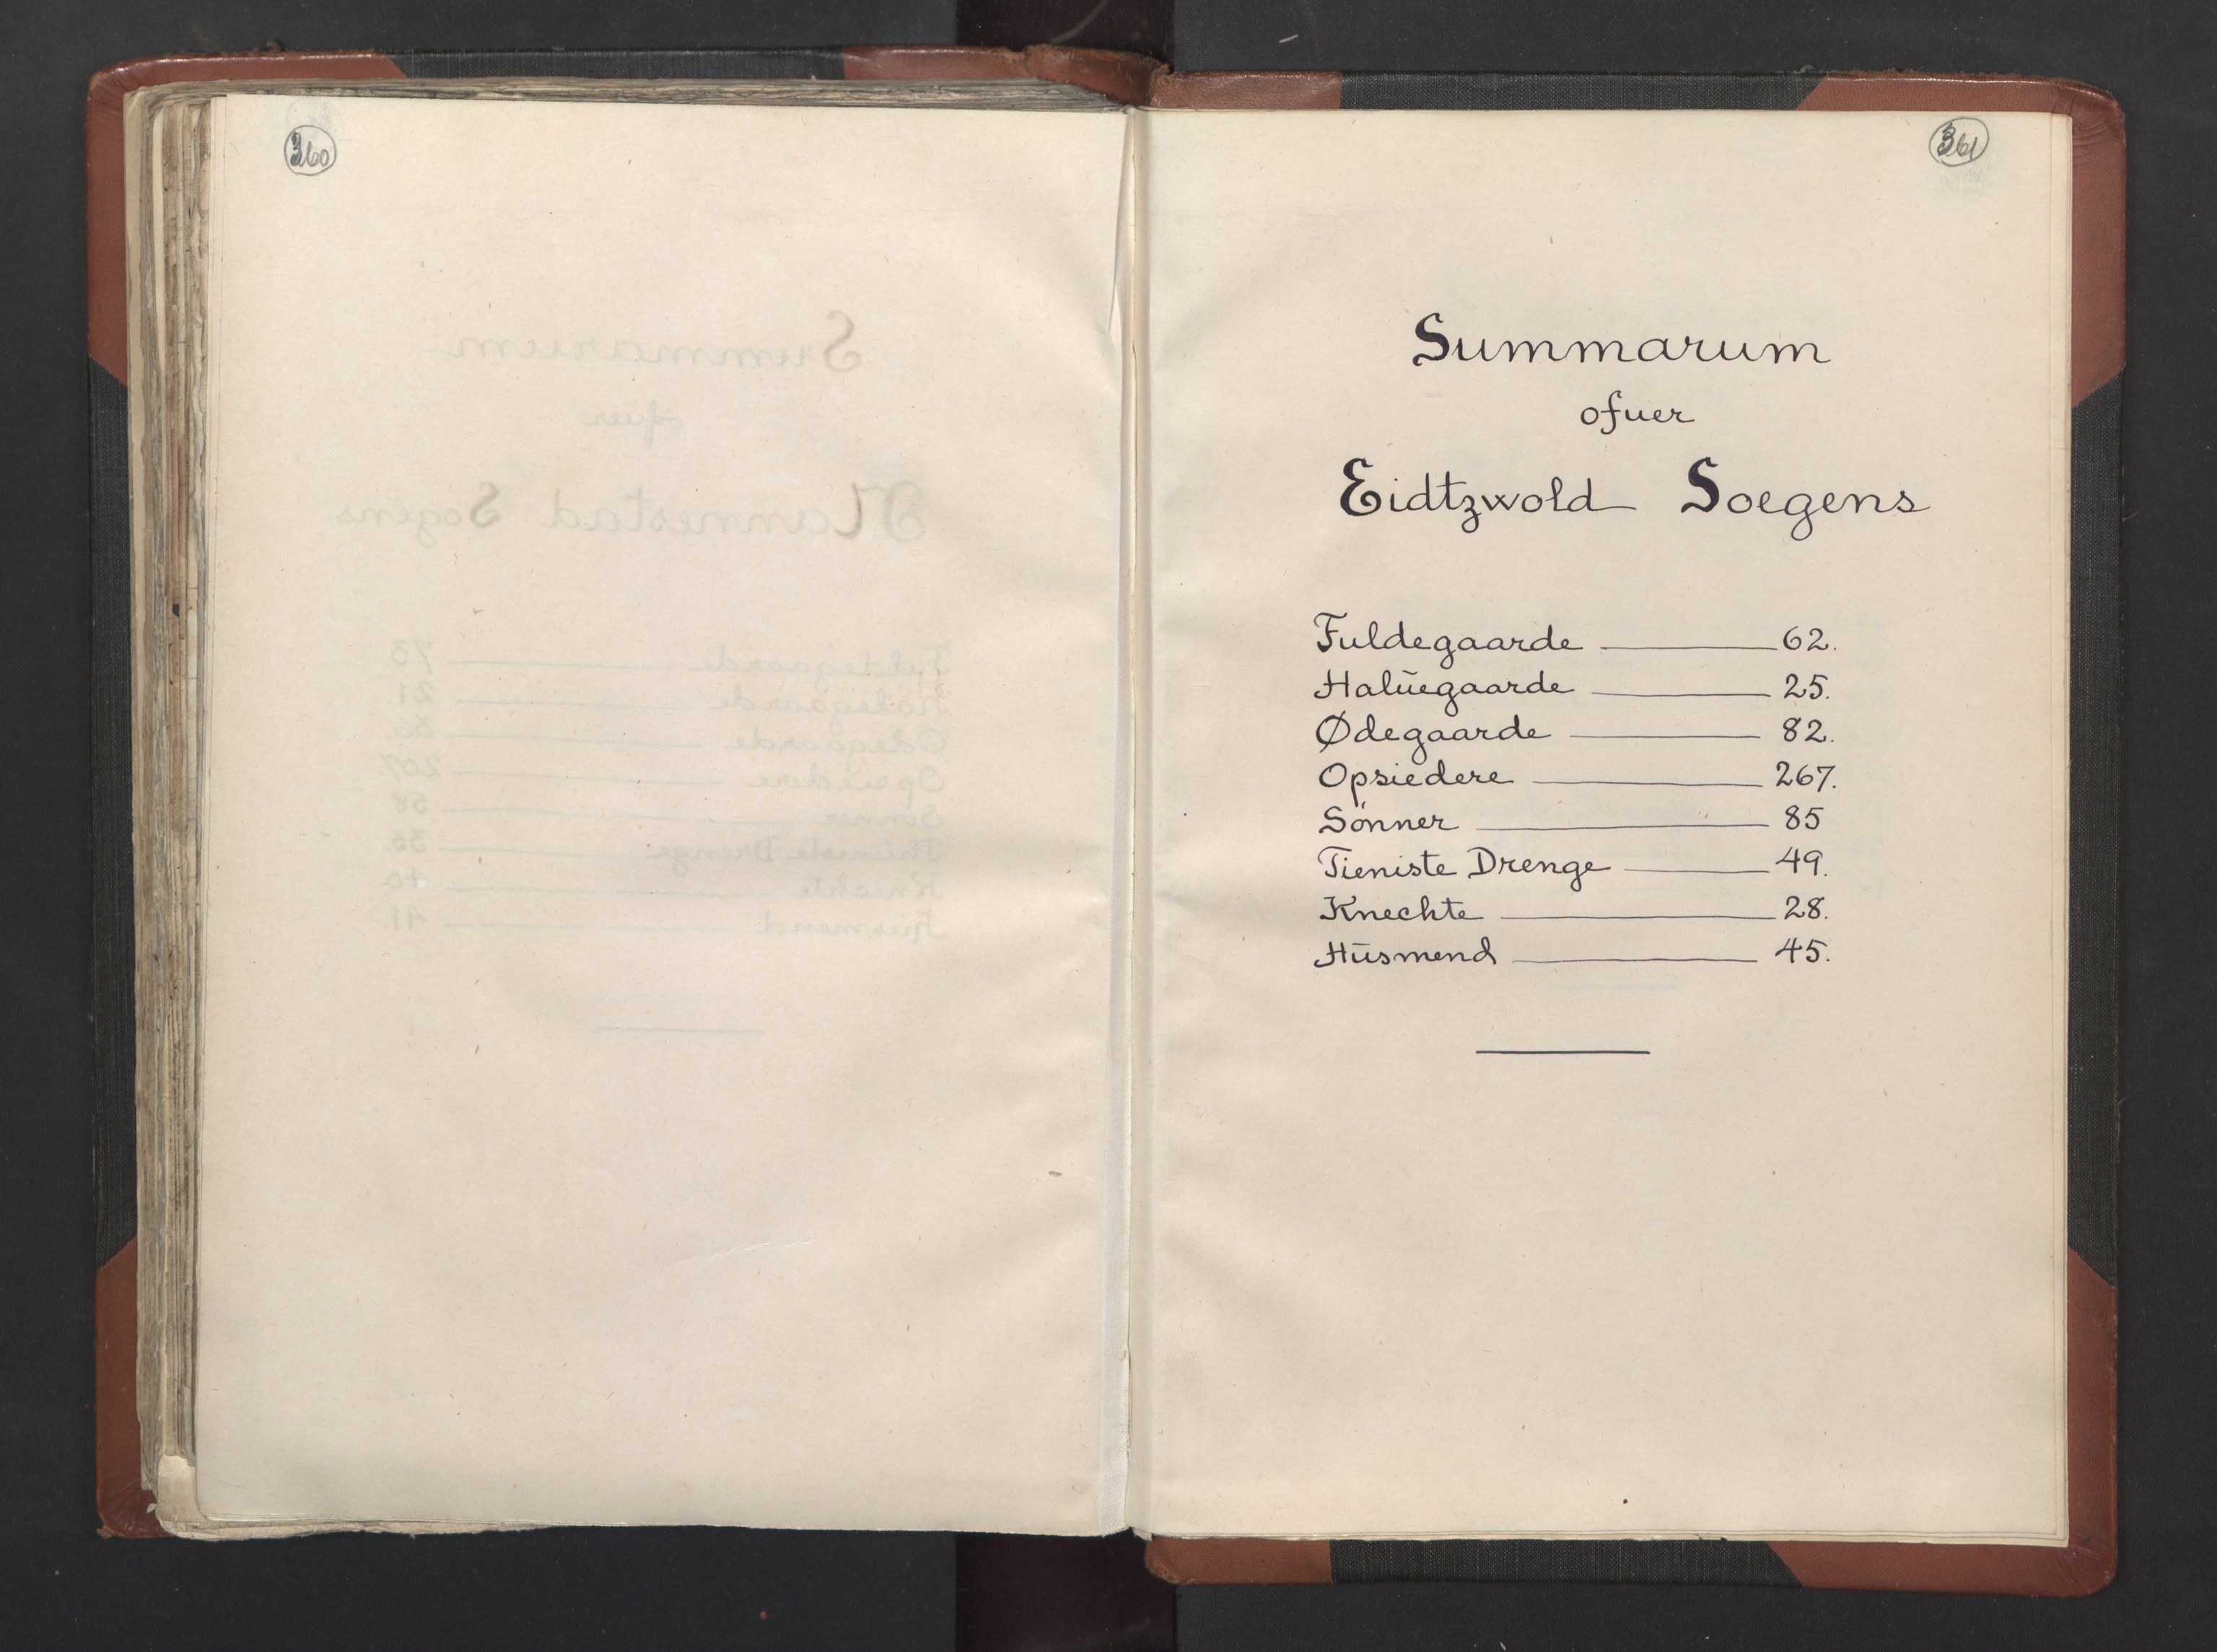 360
361
Summarum
ofuer
Eidtzwold Soegens
Fuldegaarde 62.
Halŭegaarde 25.
Ødegaarde 82.
Opsiedere 267.
Sönner 85
Tieniste Drenge 49.
Knechte 28.
Hŭsmend 45.